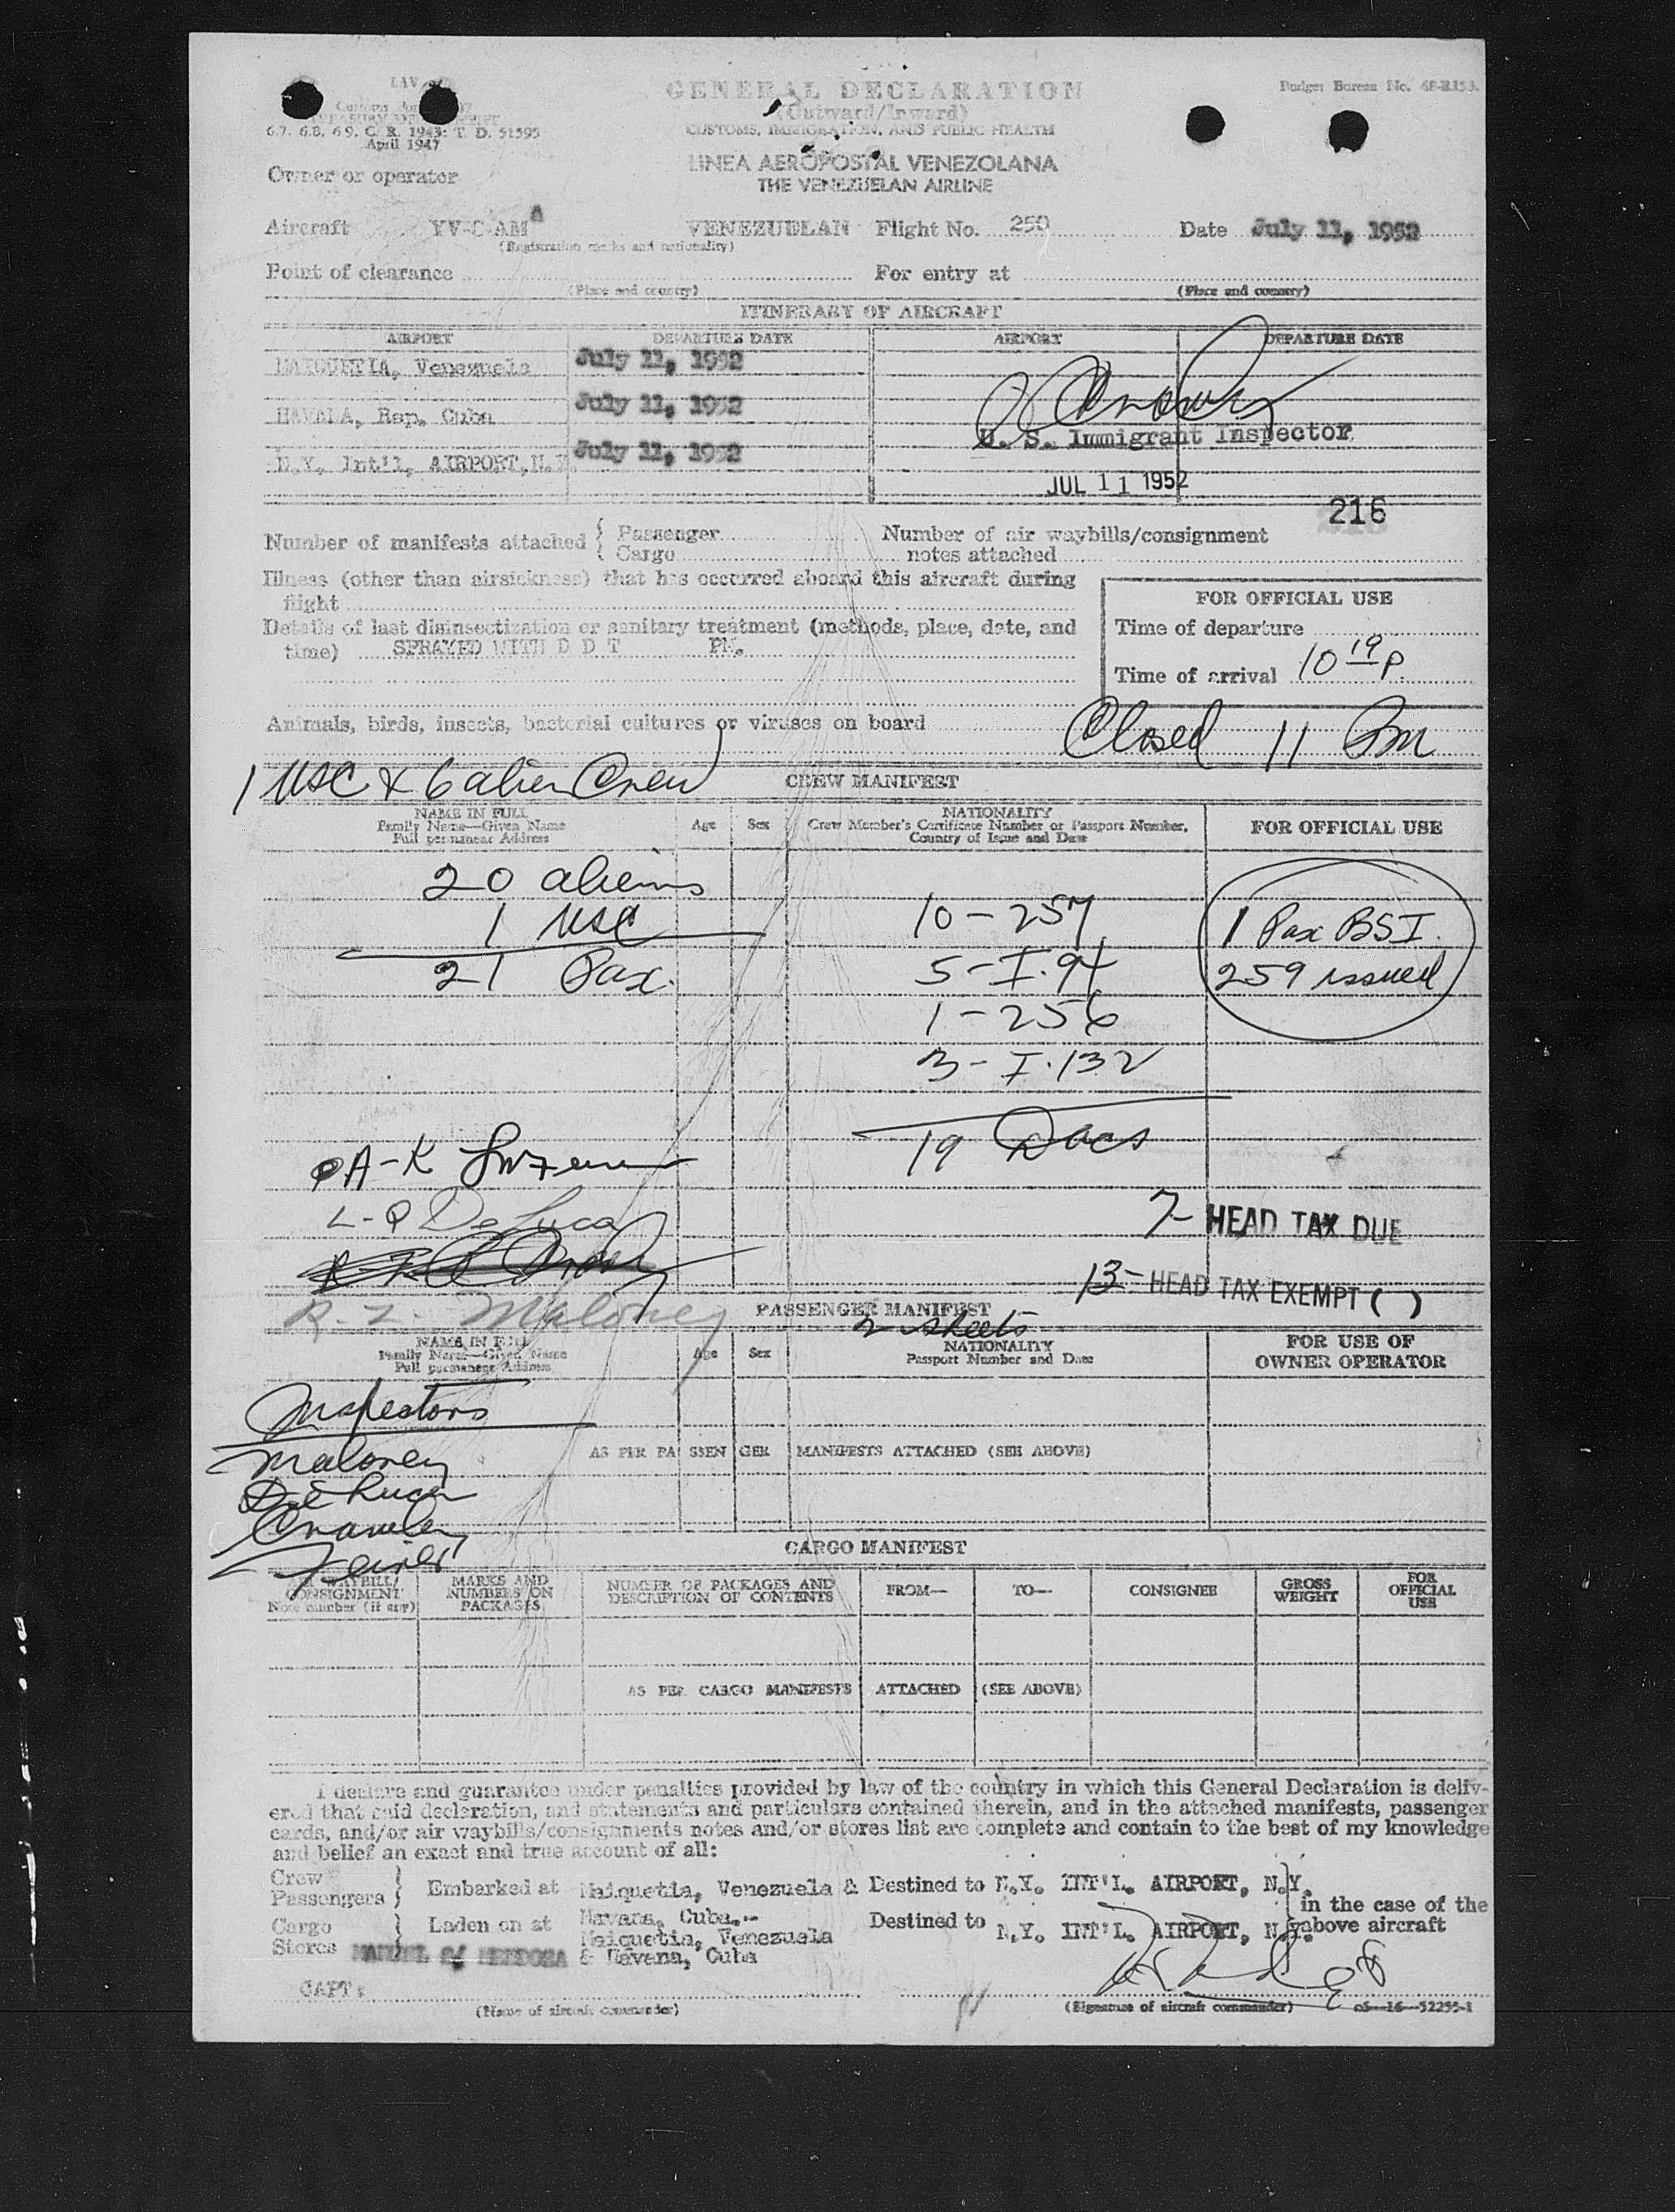 LAV
GENERAL DECLARATION
Budget Bureau No.
(Outward/Inward)
6.7, 6.8, 6.9, C. R. 1943: T. D. 51595
CUSTOMS, IMMIGRATION, AND PUBLIC HEALTH
April 1947
LINEA AEROPOSTAL VENEZOLANA
Owner or operator
THE VENEZUELAN AIRLINE
Aircraft YV-C-AM VENEZUELAN Flight No. 250 Date July 11, 1952
(Registration marks and nationality)
Point of clearance For entry at
(Place and country) (Place and country)
ITINERARY OF AIRCRAFT
AIRPORT DEPARTURE DATE AIRPORT DEPARTURE DATE
MAIQUETIA, Venezuela July 11, 1952
HAVANA, Rep. Cuba July 11, 1952
U. S. Immigrant Inspector
N.Y. Int'l, AIRPORT, N.Y. July 11, 1952
JUL 11 1952
216
Number of manifests attached { Passenger Number of air waybills/consignment
Cargo notes attached
Illness (other than airsickness) that has occurred aboard this aircraft during
flight
FOR OFFICIAL USE
Details of last disinsectization or sanitary treatment (methods, place, date, and
Time of departure
time) SPRAYED WITH D D T PM.
Time of arrival 10 19 P.
Animals, birds, insects, bacterial cultures or viruses on board
Closed 11 Pm
1 USC & 6 alien Crew
CREW MANIFEST
NAME IN FULL NATIONALITY
Family Name—Given Name Age Sex Crew Member's Certificate Number or Passport Number, FOR OFFICIAL USE
Full permanent Address Country of Issue and Date
20 aliens
1 USC 10-257 1 Pax BSI.
21 Pax. 5-I.94 259 issued
1-256
3-I.132
19 Docs
A-K
L-Q De Luca
7- HEAD TAX DUE
13- HEAD TAX EXEMPT ( )
R-Z- Maloney
PASSENGER MANIFEST
2 sheets
NAME IN FULL NATIONALITY FOR USE OF
Family Name—Given Name Age Sex Passport Number and Date OWNER OPERATOR
Full permanent Address
Inspectors
Maloney AS PER PASSENGER MANIFESTS ATTACHED (SEE ABOVE)
De Luca
CARGO MANIFEST
AIR WAYBILL/ MARKS AND NUMBER OF PACKAGES AND FROM— TO— CONSIGNEE GROSS FOR
CONSIGNMENT NUMBERS ON DESCRIPTION OF CONTENTS WEIGHT OFFICIAL
Note number (if any) PACKAGES USE
AS PER CARGO MANIFESTS ATTACHED (SEE ABOVE)
I declare and guarantee under penalties provided by law of the country in which this General Declaration is deliv-
ered that said declaration, and statements and particulars contained therein, and in the attached manifests, passenger
cards, and/or air waybills/consignments notes and/or stores list are complete and contain to the best of my knowledge
and belief an exact and true account of all:
Crew
Passengers } Embarked at Maiquetia, Venezuela & Destined to N.Y. INT'L. AIRPORT, N.Y.
Havana, Cuba.--
in the case of the
Cargo } Laden on at Maiquetia, Venezuela Destined to N.Y. INT'L. AIRPORT, N.Y. above aircraft
Stores MANUEL MENDOZA & Havana, Cuba
CAPT:
(Name of aircraft commander) (Signature of aircraft commander) 16—52255-1